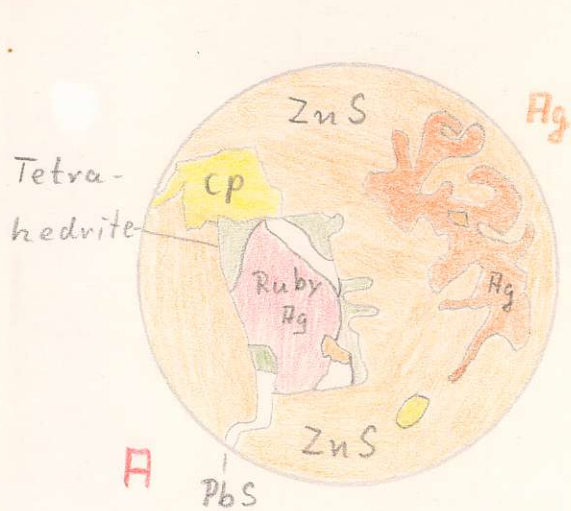 ZnS
Ag
Tetra-
hedrite
CP
Ruby
Ag
Ag
ZnS
A
PbS